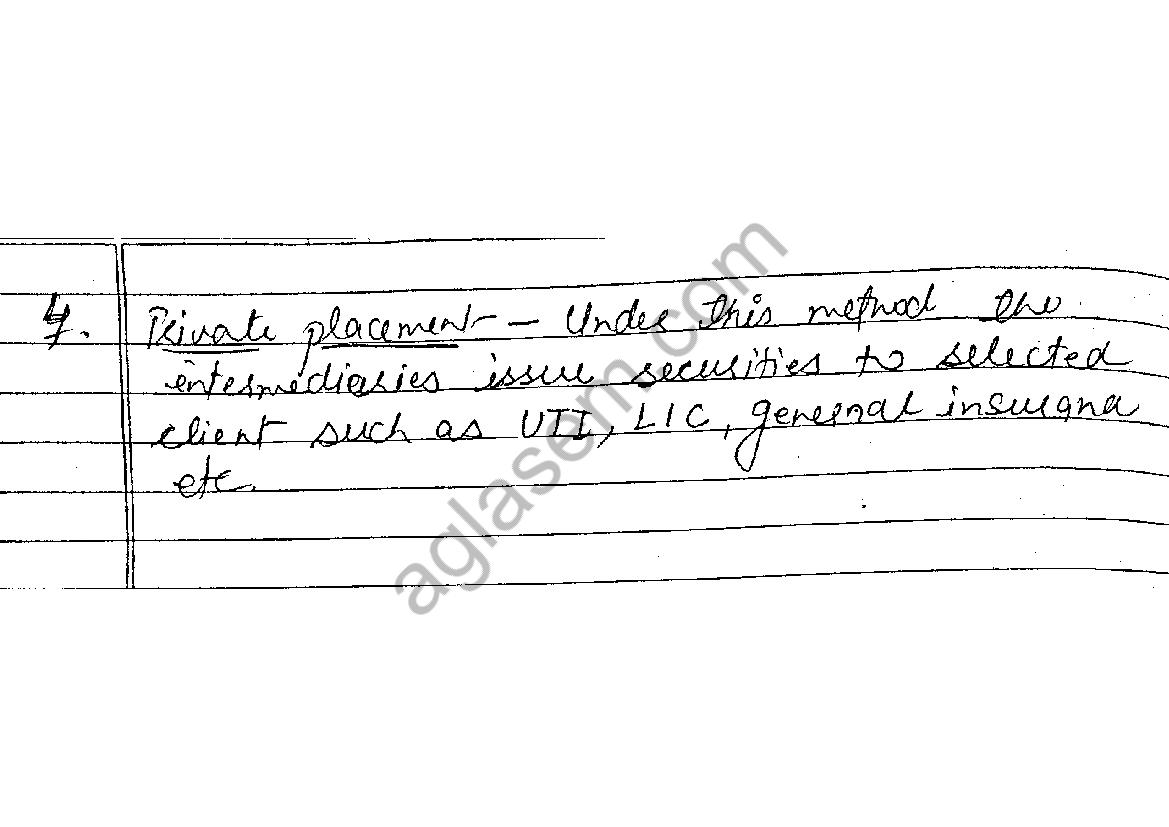 4. Private placement - Under this method the
intermediaries issue securities to selected
client such as UTI, LIC, general insurance
etc.
aglasem.com